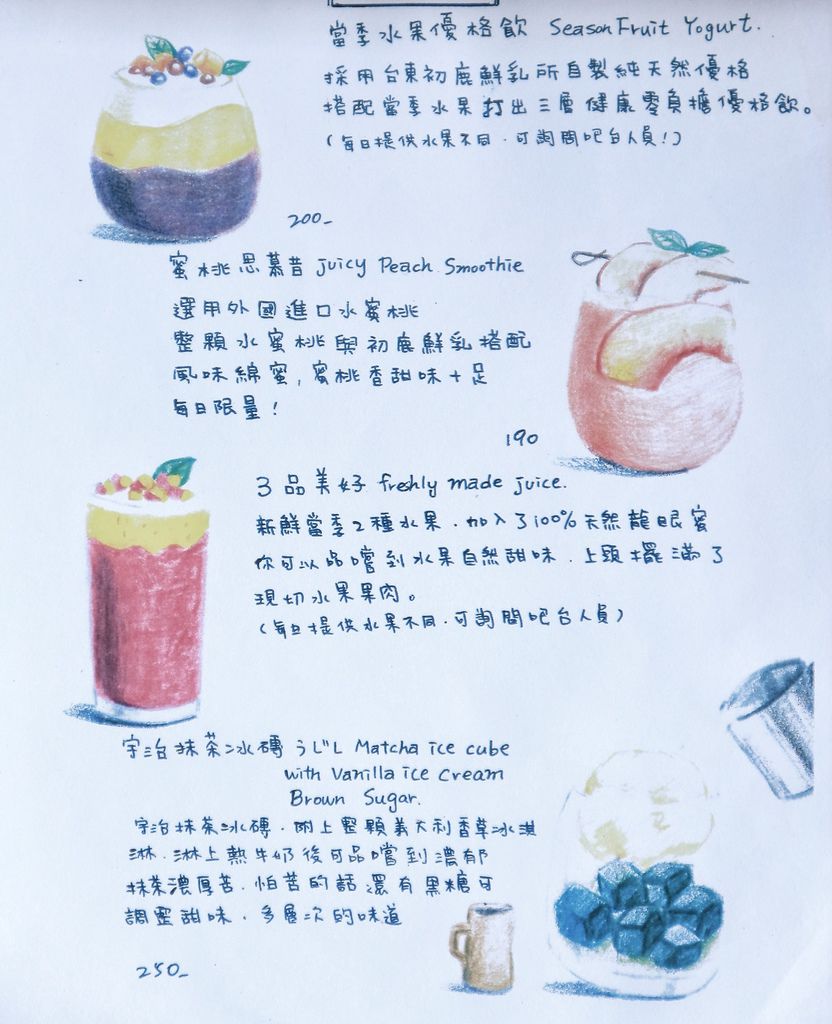 當季水果優格飲 Season Fruit Yogurt.
採用台東初鹿鮮乳所自製純天然優格
搭配當季水果打出三層健康零負擔優格飲。
(每日提供水果不同.可詢問吧台人員!)
200-
蜜桃思慕昔 juicy Peach Smoothie
選用外國進口水蜜桃
整顆水蜜桃與初鹿鮮乳搭配
風味綿蜜,蜜桃香甜味十足
每日限量!
190
3品美好 freshly made juice.
新鮮當季2種水果.加入了100%天然龍眼蜜
你可以品嚐到水果自然甜味.上頭擺滿了
現切水果果肉。
(每日提供水果不同.可詢問吧台人員)
宇治抹茶冰磚 うじし Matcha ice cube
with Vanilla ice cream
Brown Sugar.
宇治抹茶冰磚.附上整顆義大利香草冰淇
淋.淋上熱牛奶後可品嚐到濃郁
抹茶濃厚苦.怕苦的話還有黑糖可
調整甜味.多層次的味道
250-